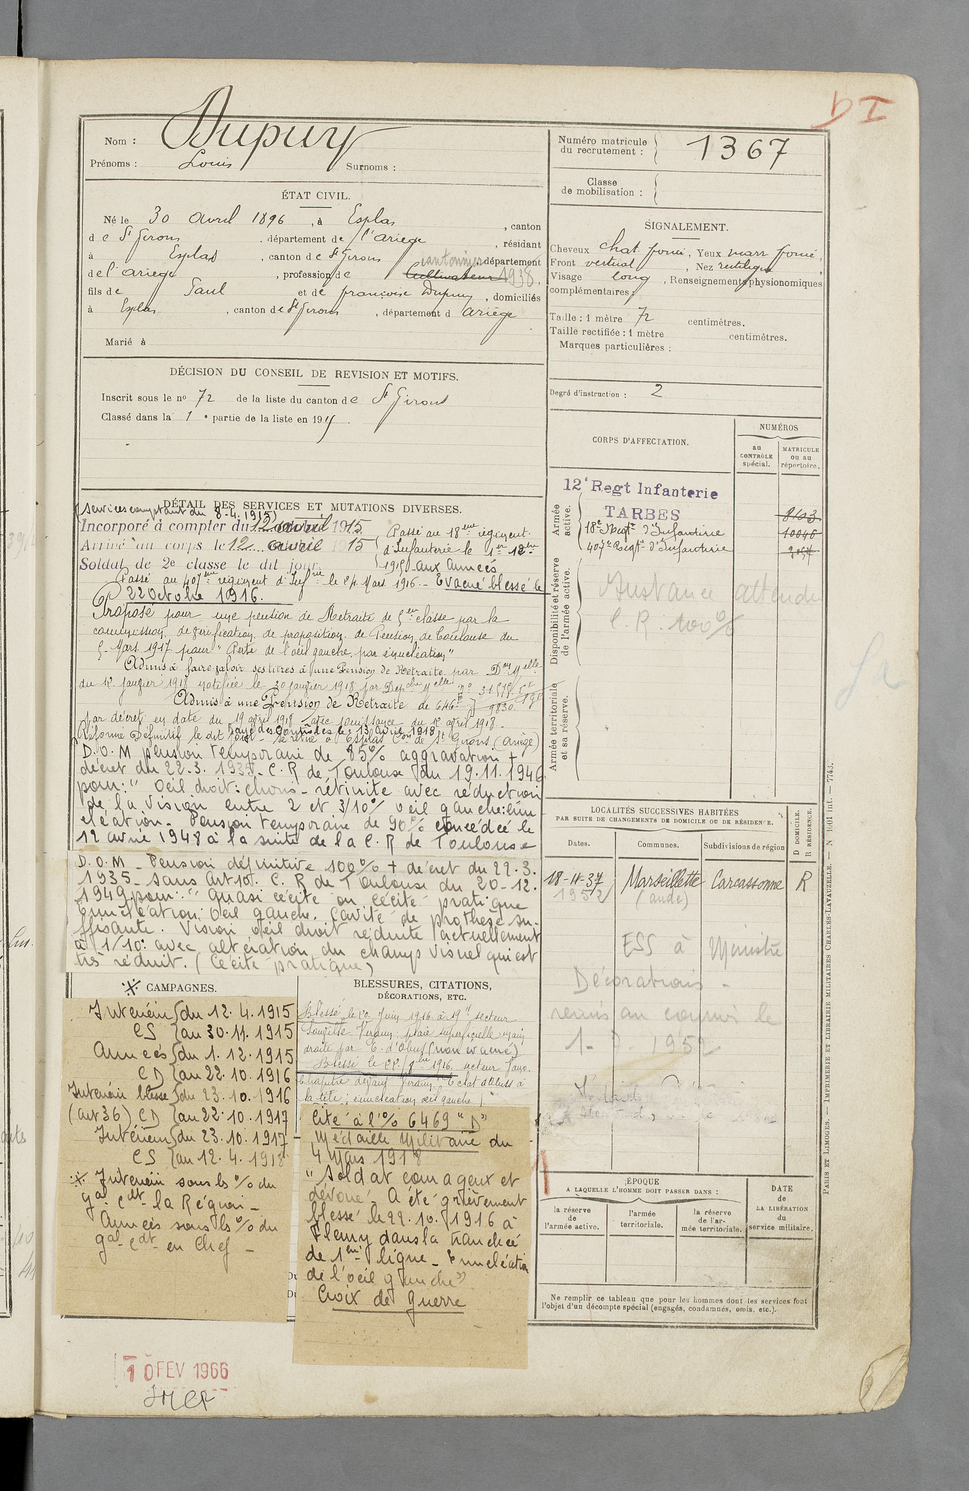 Nom : Dupuy
Prénoms : Louis Surnoms :
ÉTAT CIVIL.
Né le 30 avril 1896, à Esplas, canton
de St Girons, département de l'ariège, résidant
à Esplas, canton de St Girons, département
de l'ariège, profession de cultivateur cantonnier 1938.
fils de Paul et de françoise Dupuy, domiciliés
à Esplas, canton de St Girons, département d ariège
Marié à
DÉCISION DU CONSEIL DE REVISION ET MOTIFS.
Inscrit sous le no 72 de la liste du canton de St Girons
Classé dans la 1e partie de la liste en 191
Numéro matricule du recrutement : 1367
Classe de mobilisation :
SIGNALEMENT.
Cheveux chat foncé, Yeux marr foncé,
Front vertical, Nez rectiligne
Visage long, Renseignements physionomiques
complémentaires :
Taille : 1 mètre 72 centimètres.
Taille rectifiée : 1 mètre centimètres.
Marques particulières :
Degré d'instruction : 2
CORPS D'AFFECTATION.
NUMÉROS
au CONTRÔLE spécial.
MATRICULE OU AU répertoire.
Armée active.
12e Regt Infanterie
TARBES
18e Regt d'Infanterie
407e Regt d'Infanterie
Disponibilité et réserve de l'armée active.
C. R. 100%
Armée territoriale et sa réserve.
DÉTAIL DES SERVICES ET MUTATIONS DIVERSES.
(Services comptant du 8-4.1915)
Incorporé à compter du 12 avril 1915
Arrivé au corps le 12 avril 1915
Soldat de 2e classe le dit jour
Passé au 18eme régiment
d'Infanterie le 1er Xbre
1915 - aux armées
Passé au 407eme régiment d'Infie le Mars 1916 - Evacué blessé le
22 Octobre 1916.
Proposé pour une pension de Retraite de 5eme classe par la
commission de vérification de proposition de Pension de Toulouse du
Mars 1917 pour "Perte de l'œil gauche par énucléation"
Admis à faire valoir ses titres à une Pension de Retraite par
Admis à une Pension de Retraite de
par décret en date du 19 avril 1918 avec jouissance du avril 1918.
D.O.M pension temporaire de 85% aggravation +
décret du 22.3.1935 - C.R de Toulouse du 19.11.1946
pour : "Oeil droit : chorio-rétinite avec réduction
de la vision entre 2 et 3/10% oeil gauche : énu-
cléation - Pension temporaire de 90% concédée le
12 avril 1948 à la suite de la C.R de Toulouse
D.O.M - Pension définitive 100% + décret du 22.3.
1935 - Sans Art 10. C. R de Toulouse du 20-12.
1949 pour : "Quasi cécité ou cécité pratique
énucléation oeil gauche. Cavité de prothèse su-
ffisante. Vision oeil droit réduite actuellement
à 1/10e avec altération du champs visuel qui est
très réduit. (Cécité pratique)
LOCALITÉS SUCCESSIVES HABITÉES
PAR SUITE DE CHANGEMENTS DE DOMICILE OU DE RÉSIDENCE.
D DOMICILE. R RÉSIDENCE.
Dates. Communes. Subdivisions de région
18-11-37 Marseillette Carcassonne R
1952 (aude)
ESS à Ministre
Décorations -
remis au courrier le
1952
CAMPAGNES.
Intérieur (du 12.4.1915
CS (au 30.11.1915
Armées (du 1.12.1915
CD (au 22.10.1916
Intérieur blessé (du 23.10.1916
(art 36) CD (au 22.10.1917
Intérieur (du 23.10.1917
CS (au 12.4.1918
Intérieur sous ls % du
gal Cdt la Région -
Armées sous ls % du
gal Cdt en Chef -
BLESSURES, CITATIONS,
DÉCORATIONS, ETC.
Blessé le Juin 1916
droite par E. d'Obus (non évacué)
la tête ; énucléation œil gauche
Cité à l'% 6469 "D"
Médaille Militaire du
4 Mars 1918
"Soldat courageux et
dévoué. A été grièvement
blessé le 22.10.1916 à
Fleury dans la tranchée
de 1ère ligne - Enucléation
de l'oeil gauche"
Croix de Guerre
ÉPOQUE
A LAQUELLE L'HOMME DOIT PASSER DANS :
la réserve de l'armée active.
l'armée territoriale.
la réserve de l'armée territoriale.
DATE de LA LIBÉRATION du service militaire.
Ne remplir ce tableau que pour les hommes dont les services font
l'objet d'un décompte spécial (engagés, condamnés, omis, etc.).
PARIS ET LIMOGES. — IMPRIMERIE ET LIBRAIRIE MILITAIRES CHARLES-LAVAUZELLE.
10 FEV 1966